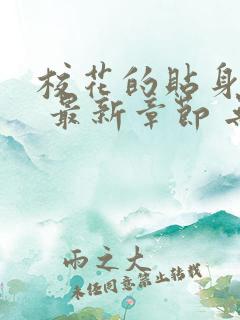 校花的貼身
最新章節
雨之大
未经同意禁止转载